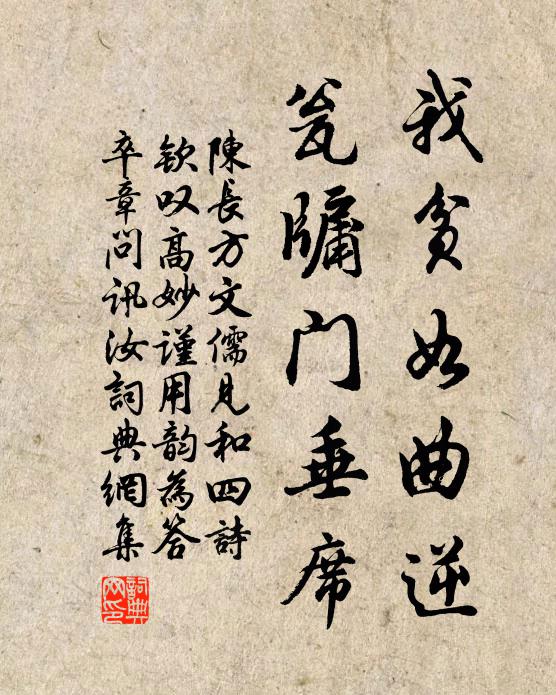 我贫如曲逆
瓮牖门垂席
陳長方文儒見和四詩
欽叹高妙謹用韵為答
卒章問訊汝詞典網集
詞典
网印